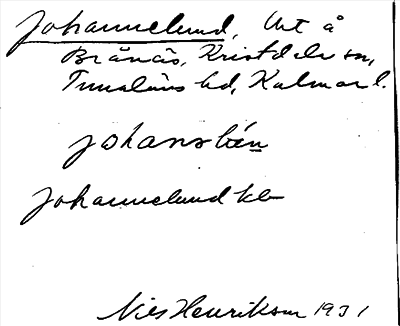 Johannelund, Utt å
Brånäs, Kristdala sn,
Tunaläns hd, Kalmar l.
johanslún
Johannelund kb
Nils Henrikson 1931